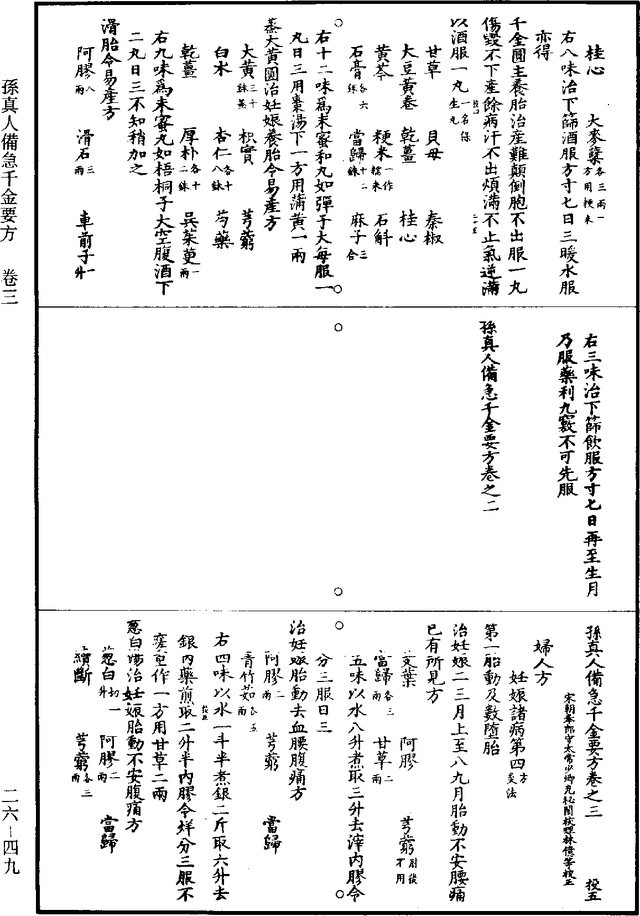 桂心 大麥蘗各三兩一方用粳米
右八味治下篩酒服方寸七日三暖水服
亦得
千金圓主養胎治產難顛倒胞不出服一丸
傷毀不下產餘病汗不出煩滿不止氣逆滿
以酒服一丸一名保生丸
甘草 貝母 秦椒
大豆黃卷 乾薑 桂心
黃芩 粳米一作糯米 石斛
石膏各六銖 當歸十二銖 麻子三合
右十二味為末蜜和丸如彈子大每服一
丸日三用棗湯下一方用蒲黃一兩
蒸大黃圓治妊娠養胎令易產方
大黃三十銖蒸 枳實 芎藭
白朮 杏仁各十八銖 芍藥
乾薑 厚朴各十二銖 吳茱萸一兩
右九味為末蜜丸如梧桐子大空腹酒下
二丸日三不知稍加之
滑胎令易產方
阿膠八兩 滑石三兩 車前子一升
右三味治下篩飲服方寸七日再至生月
乃服藥利九竅不可先服
孫真人備急千金要方卷之二
孫真人備急千金要方卷之三 投五
宋朝奉郎守太常少卿充秘閣校理林億等校正
婦人方
妊娠諸病第四方灸法
第一胎動及數墮胎
治妊娠二三月上至八九月胎動不安腰痛
已有所見方
艾葉 阿膠 芎藭肘後不用
當歸各三兩 甘草二兩
五味以水八升煮取三升去滓內膠令
分三服日三
治妊娠胎動去血腰腹痛方
阿膠二兩 芎藭 當歸
青竹茹各三兩
右四味以水一斗半煮銀二斤取六升去
銀內藥煎取二升半內膠令烊分三服不
瘥重作一方用甘草二兩
蔥白湯治妊娠胎動不安腹痛方
蔥白切一升 阿膠二兩 當歸
續斷 芎藭各三兩
孫真人備急千金要方 卷三
二六—四九